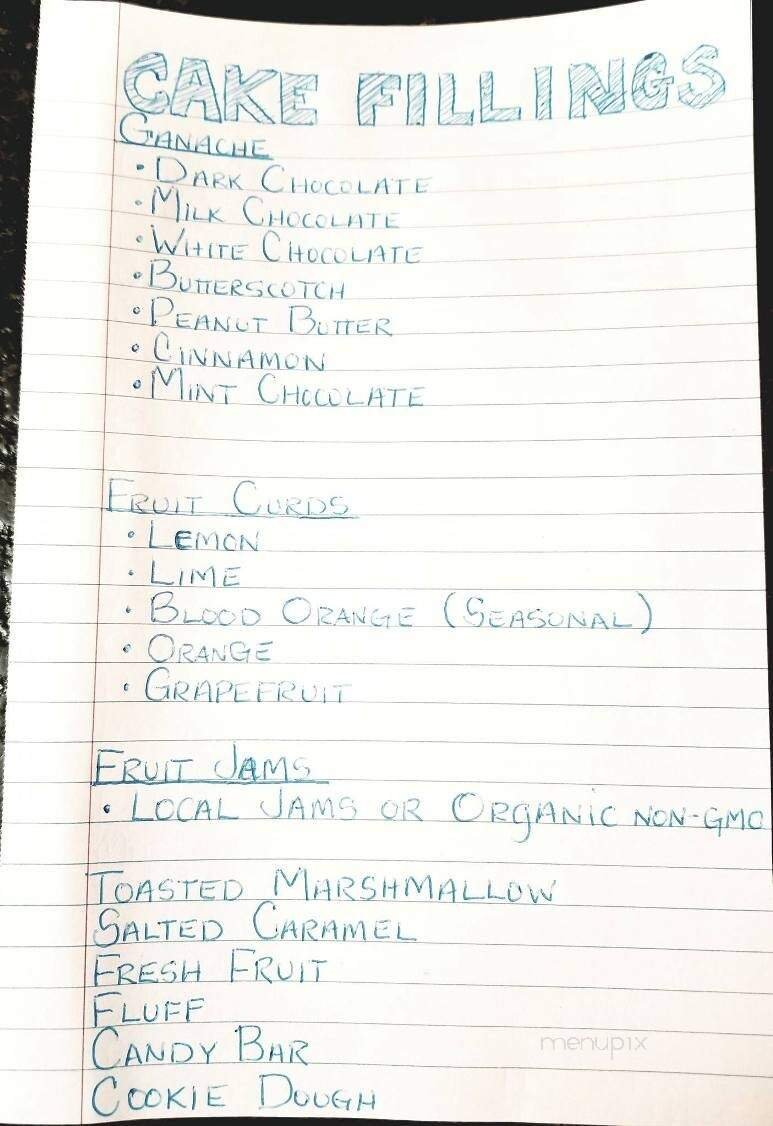 CAKE FILLINGS
GANACHE
• DARK CHOCOLATE
• MILK CHOCOLATE
• WHITE CHOCOLATE
• BUTTERSCOTCH
• PEANUT BUTTER
• CINNAMON
• MINT CHOCOLATE
FRUIT CURDS
• LEMON
• LIME
• BLOOD ORANGE (SEASONAL)
• ORANGE
• GRAPEFRUIT
FRUIT JAMS
• LOCAL JAMS OR ORgANiC NON-GMO
TOASTED MARSHMALLOW
SALTED CARAMEL
FRESH FRUIT
FLUFF
CANDY BAR
COOKIE DOUGH
menupix